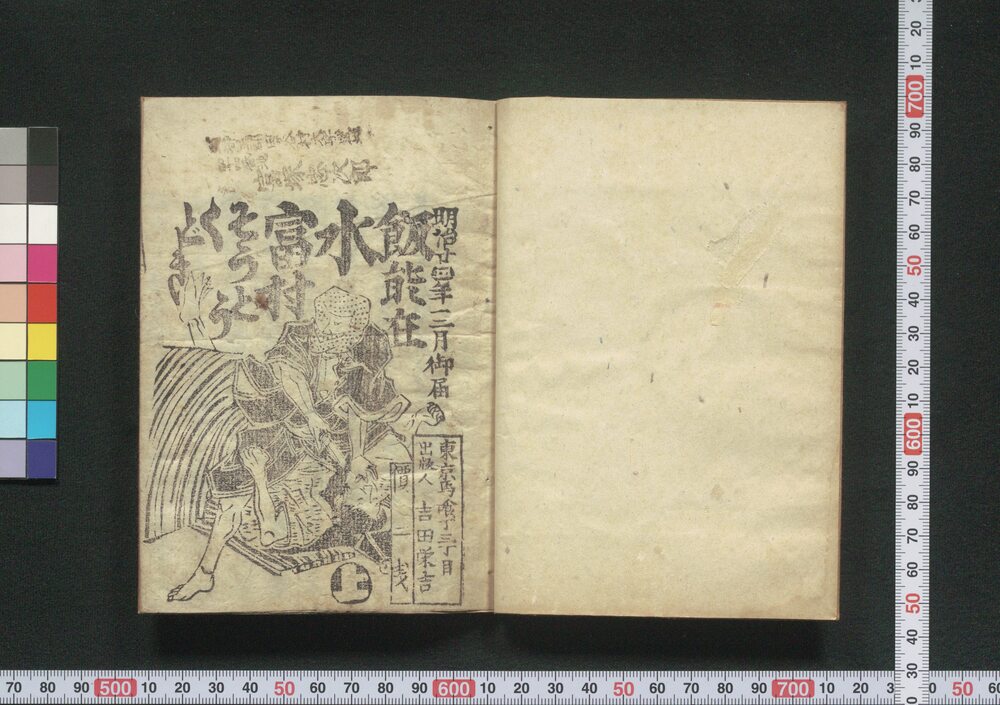 明治廿四年三月御届
飯能在
水
富村
そうとう
くどき
東京馬喰丁三丁目
出版人 吉田栄吉
價二戔
上
20 10 700 90 80 70 60 50 40 30 20 10 600 90 80 70 60 50 40 30
70 80 90 500 10 20 30 40 50 60 70 80 90 600 10 20 30 40 50 60 70 80 90 700 10 20 50